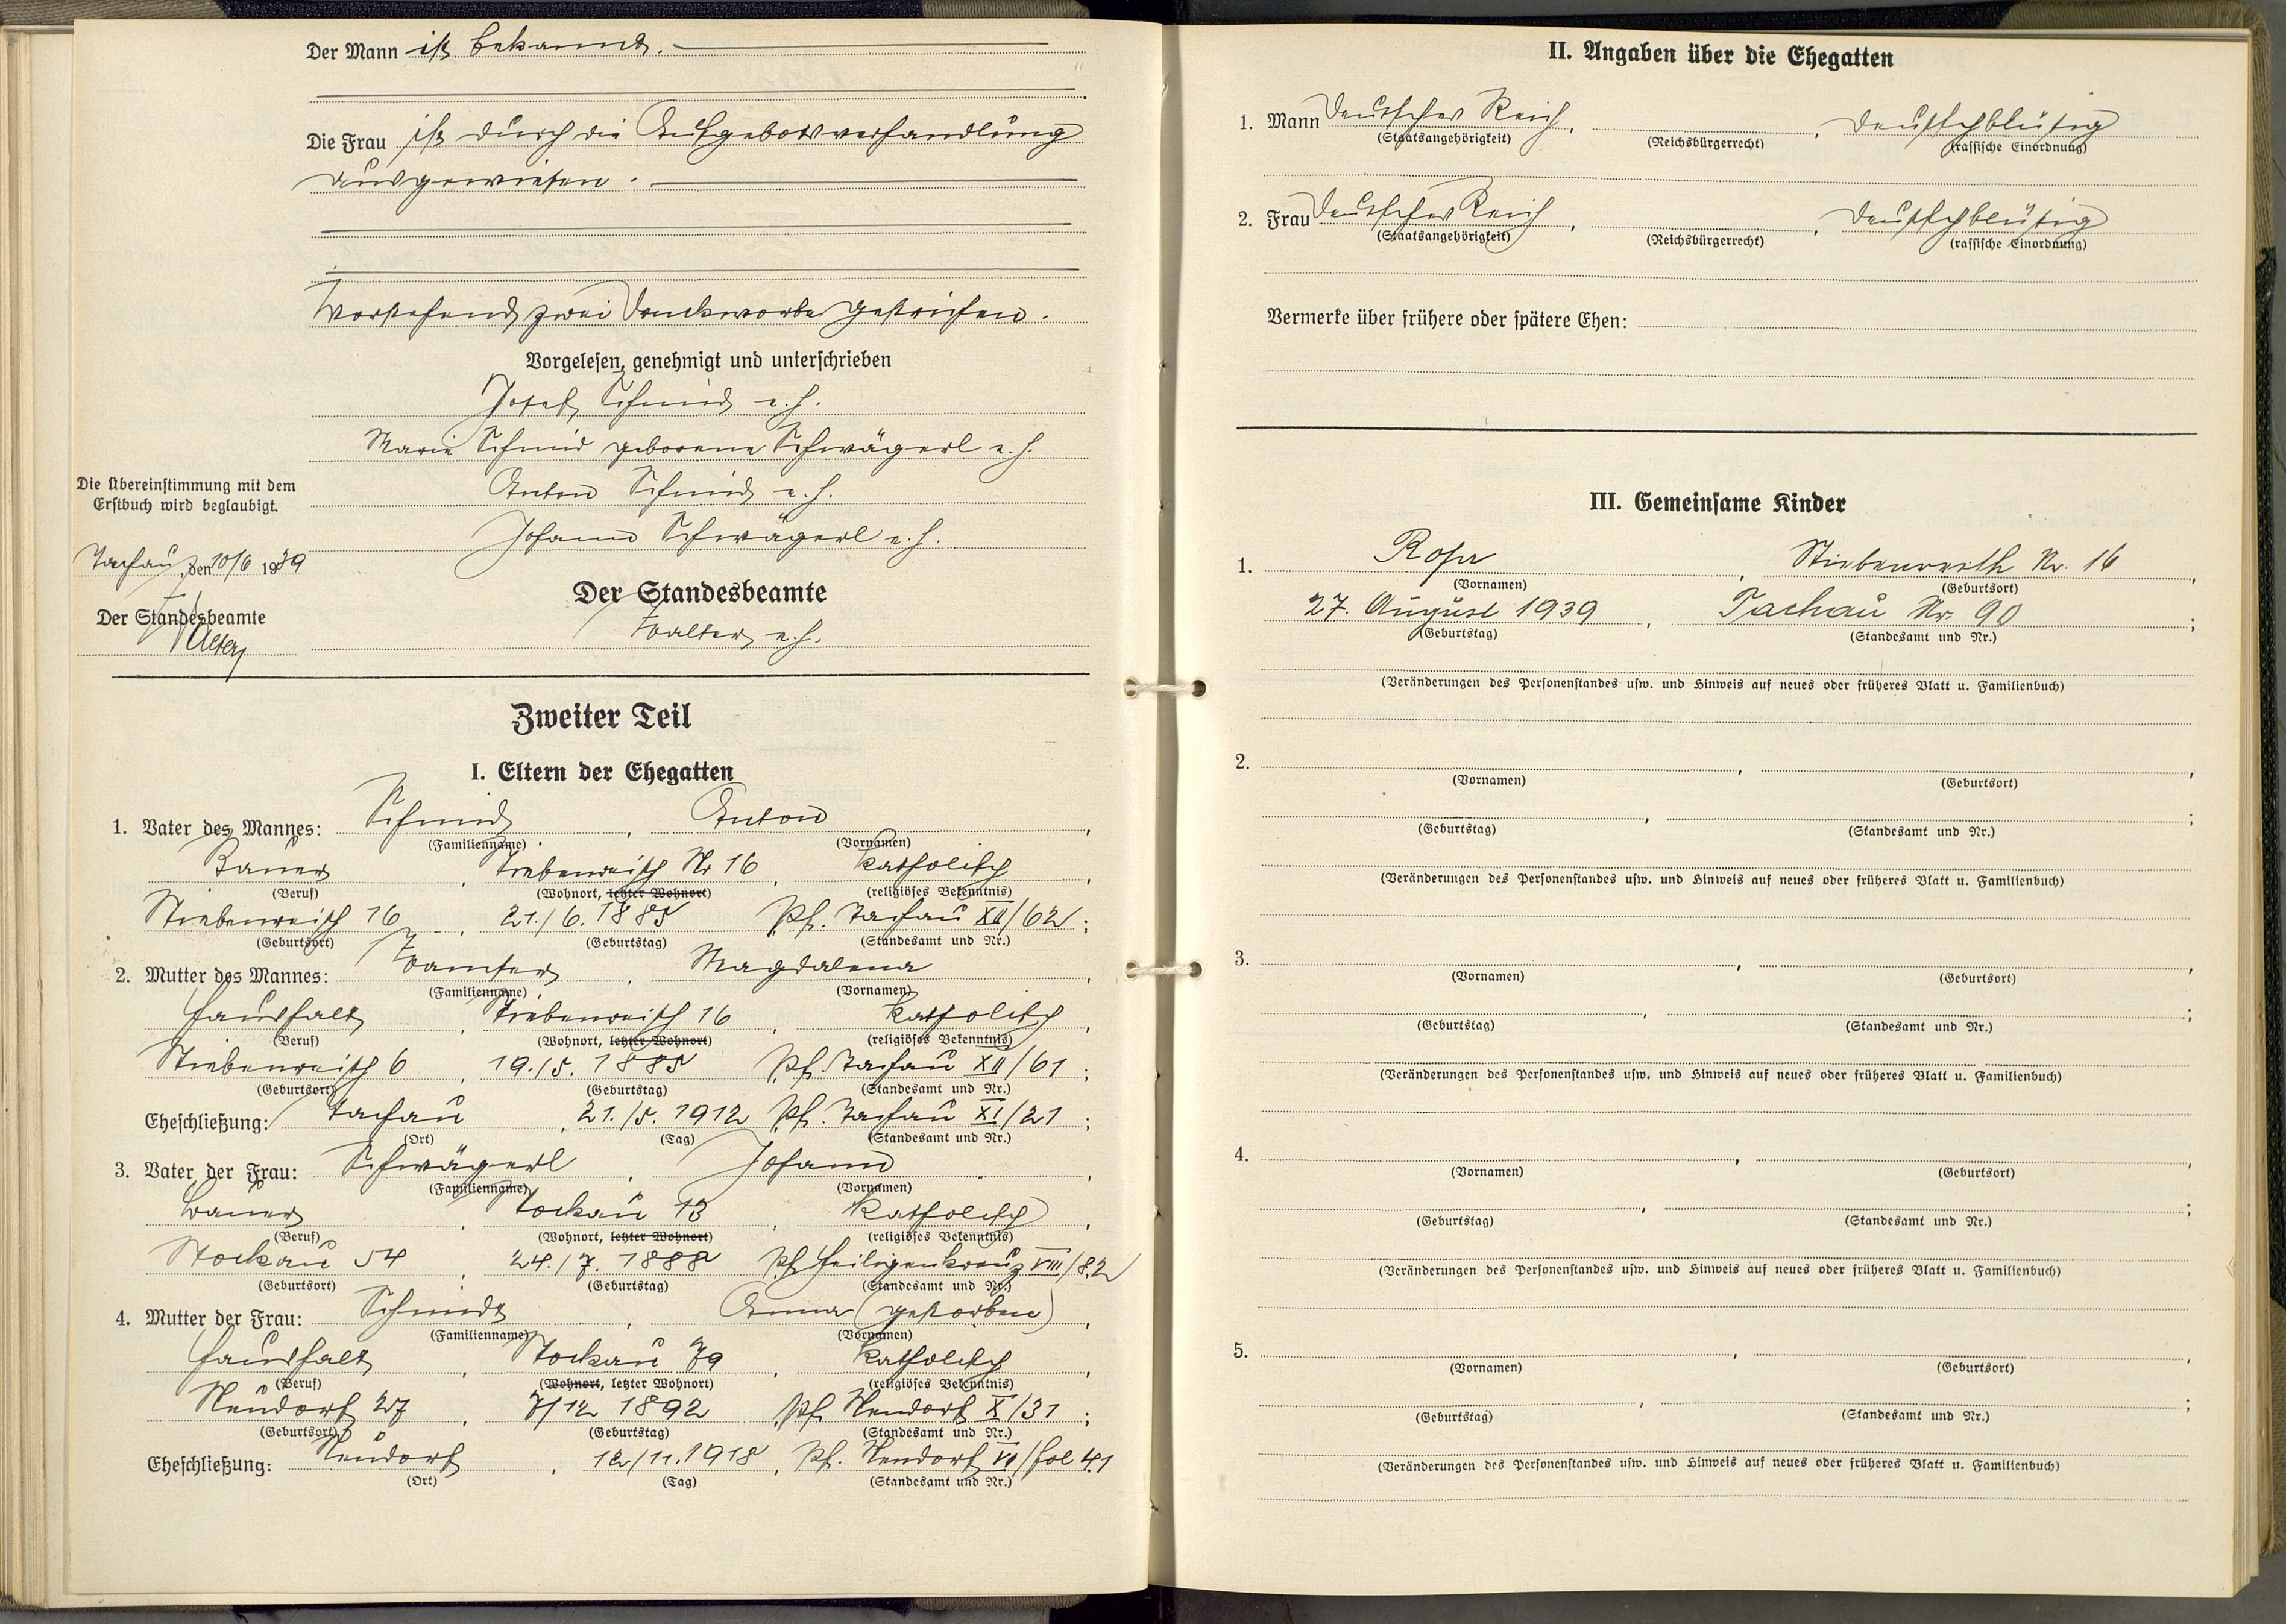 Der Mann ist bekannt.
Die Frau ist durch die Aufgebotsverhandlung
ausgewiesen.
Vorstehend zwei Druckworte gestrichen.
Vorgelesen, genehmigt und unterschrieben
Josef Schmid e.h.
Marie Schmid geborene Schwägerl e.h.
Anton Schmid e.h.
Johann Schwägerl e.h.
Die Übereinstimmung mit dem
Erstbuch wird beglaubigt.
Tachau, den 10/6 1939
Der Standesbeamte
Der Standesbeamte
Walter e.h.
Zweiter Teil
I. Eltern der Ehegatten
1. Vater des Mannes: Schmid, Anton,
(Familienname) (Vornamen)
Bauer, Stiebenreith Nr 16, katholisch,
(Beruf) (Wohnort, letzter Wohnort) (religiöses Bekenntnis)
Stiebenreith 16, 21./6. 1885 Pf. Tachau XII/62;
(Geburtsort) (Geburtstag) (Standesamt und Nr.)
2. Mutter des Mannes: Magdalena,
(Familienname) (Vornamen)
Haushalt, Stiebenreith 16, katholisch,
(Beruf) (Wohnort, letzter Wohnort) (religiöses Bekenntnis)
Stiebenreith 6, 19./5. 1885 Pf. Tachau XII/61;
(Geburtsort) (Geburtstag) (Standesamt und Nr.)
Eheschließung: Tachau, 21./5. 1912 Pf. Tachau XI/21;
(Ort) (Tag) (Standesamt und Nr.)
3. Vater der Frau: Schwägerl, Johann,
(Familienname) (Vornamen)
Bauer, Stockau 13, katholisch,
(Beruf) (Wohnort, letzter Wohnort) (religiöses Bekenntnis)
Stockau 54, 24./7. 1888 Pf. Heiligenkreuz VIII/82
(Geburtsort) (Geburtstag) (Standesamt und Nr.)
4. Mutter der Frau: Schmidt, Anna (gestorben),
(Familienname) (Vornamen)
Haushalt, Stockau 79, katholisch,
(Beruf) (Wohnort, letzter Wohnort) (religiöses Bekenntnis)
Neudorf 27, 7/12 1892 Pf. Neudorf X/31;
(Geburtsort) (Geburtstag) (Standesamt und Nr.)
Eheschließung: Neudorf, 12/11. 1918, Pf. Neudorf VI/fol 41
(Ort) (Tag) (Standesamt und Nr.)
II. Angaben über die Ehegatten
1. Mann Deutsches Reich, , deutschblütig
(Staatsangehörigkeit) (Reichsbürgerrecht) (rassische Einordnung)
2. Frau Deutsches Reich, , deutschblütig
(Staatsangehörigkeit) (Reichsbürgerrecht) (rassische Einordnung)
Vermerke über frühere oder spätere Ehen:
III. Gemeinsame Kinder
1. Rosa, Stiebenreith Nr. 16,
(Vornamen) (Geburtsort)
27. August 1939, Tachau Nr. 90;
(Geburtstag) (Standesamt und Nr.)
(Veränderungen des Personenstandes usw. und Hinweis auf neues oder früheres Blatt u. Familienbuch)
2. , ,
(Vornamen) (Geburtsort)
, ;
(Geburtstag) (Standesamt und Nr.)
(Veränderungen des Personenstandes usw. und Hinweis auf neues oder früheres Blatt u. Familienbuch)
3. , ,
(Vornamen) (Geburtsort)
, ;
(Geburtstag) (Standesamt und Nr.)
(Veränderungen des Personenstandes usw. und Hinweis auf neues oder früheres Blatt u. Familienbuch)
4. , ,
(Vornamen) (Geburtsort)
, ;
(Geburtstag) (Standesamt und Nr.)
(Veränderungen des Personenstandes usw. und Hinweis auf neues oder früheres Blatt u. Familienbuch)
5. , ,
(Vornamen) (Geburtsort)
, ;
(Geburtstag) (Standesamt und Nr.)
(Veränderungen des Personenstandes usw. und Hinweis auf neues oder früheres Blatt u. Familienbuch)